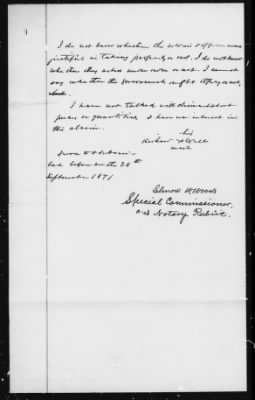 1
I do not know whether the officers were
justified in taking property or not. I do not know
whether they acted or not. I cannot
say whether the Government ought to pay or not,
I have not talked with claimant about
prices or quantities. I have no interest in
this claim.
his
Richard X
mark
Sworn to & subscri-
bed before me this 28th
September 1871
Elmore W. Woods
Special Commissioner.
and Notary Public.